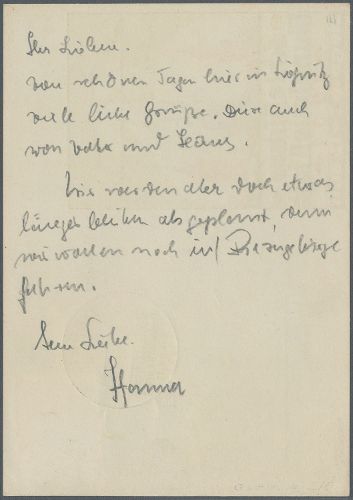 Ihr Lieben.
von schönen Tagen hier in Liegnitz
viele liebe Grüße. Diese auch
von Vater und
Wir werden aber doch etwas
länger bleiben als geplant, denn
wir wollen noch ins Riesengebirge
fahren.
Liebe.
Hanna